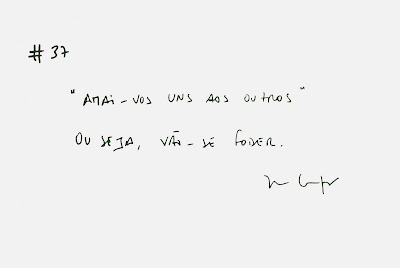 # 37
"AMAI-VOS UNS AOS OUTROS"
OU SEJA, VÃO-SE FODER.